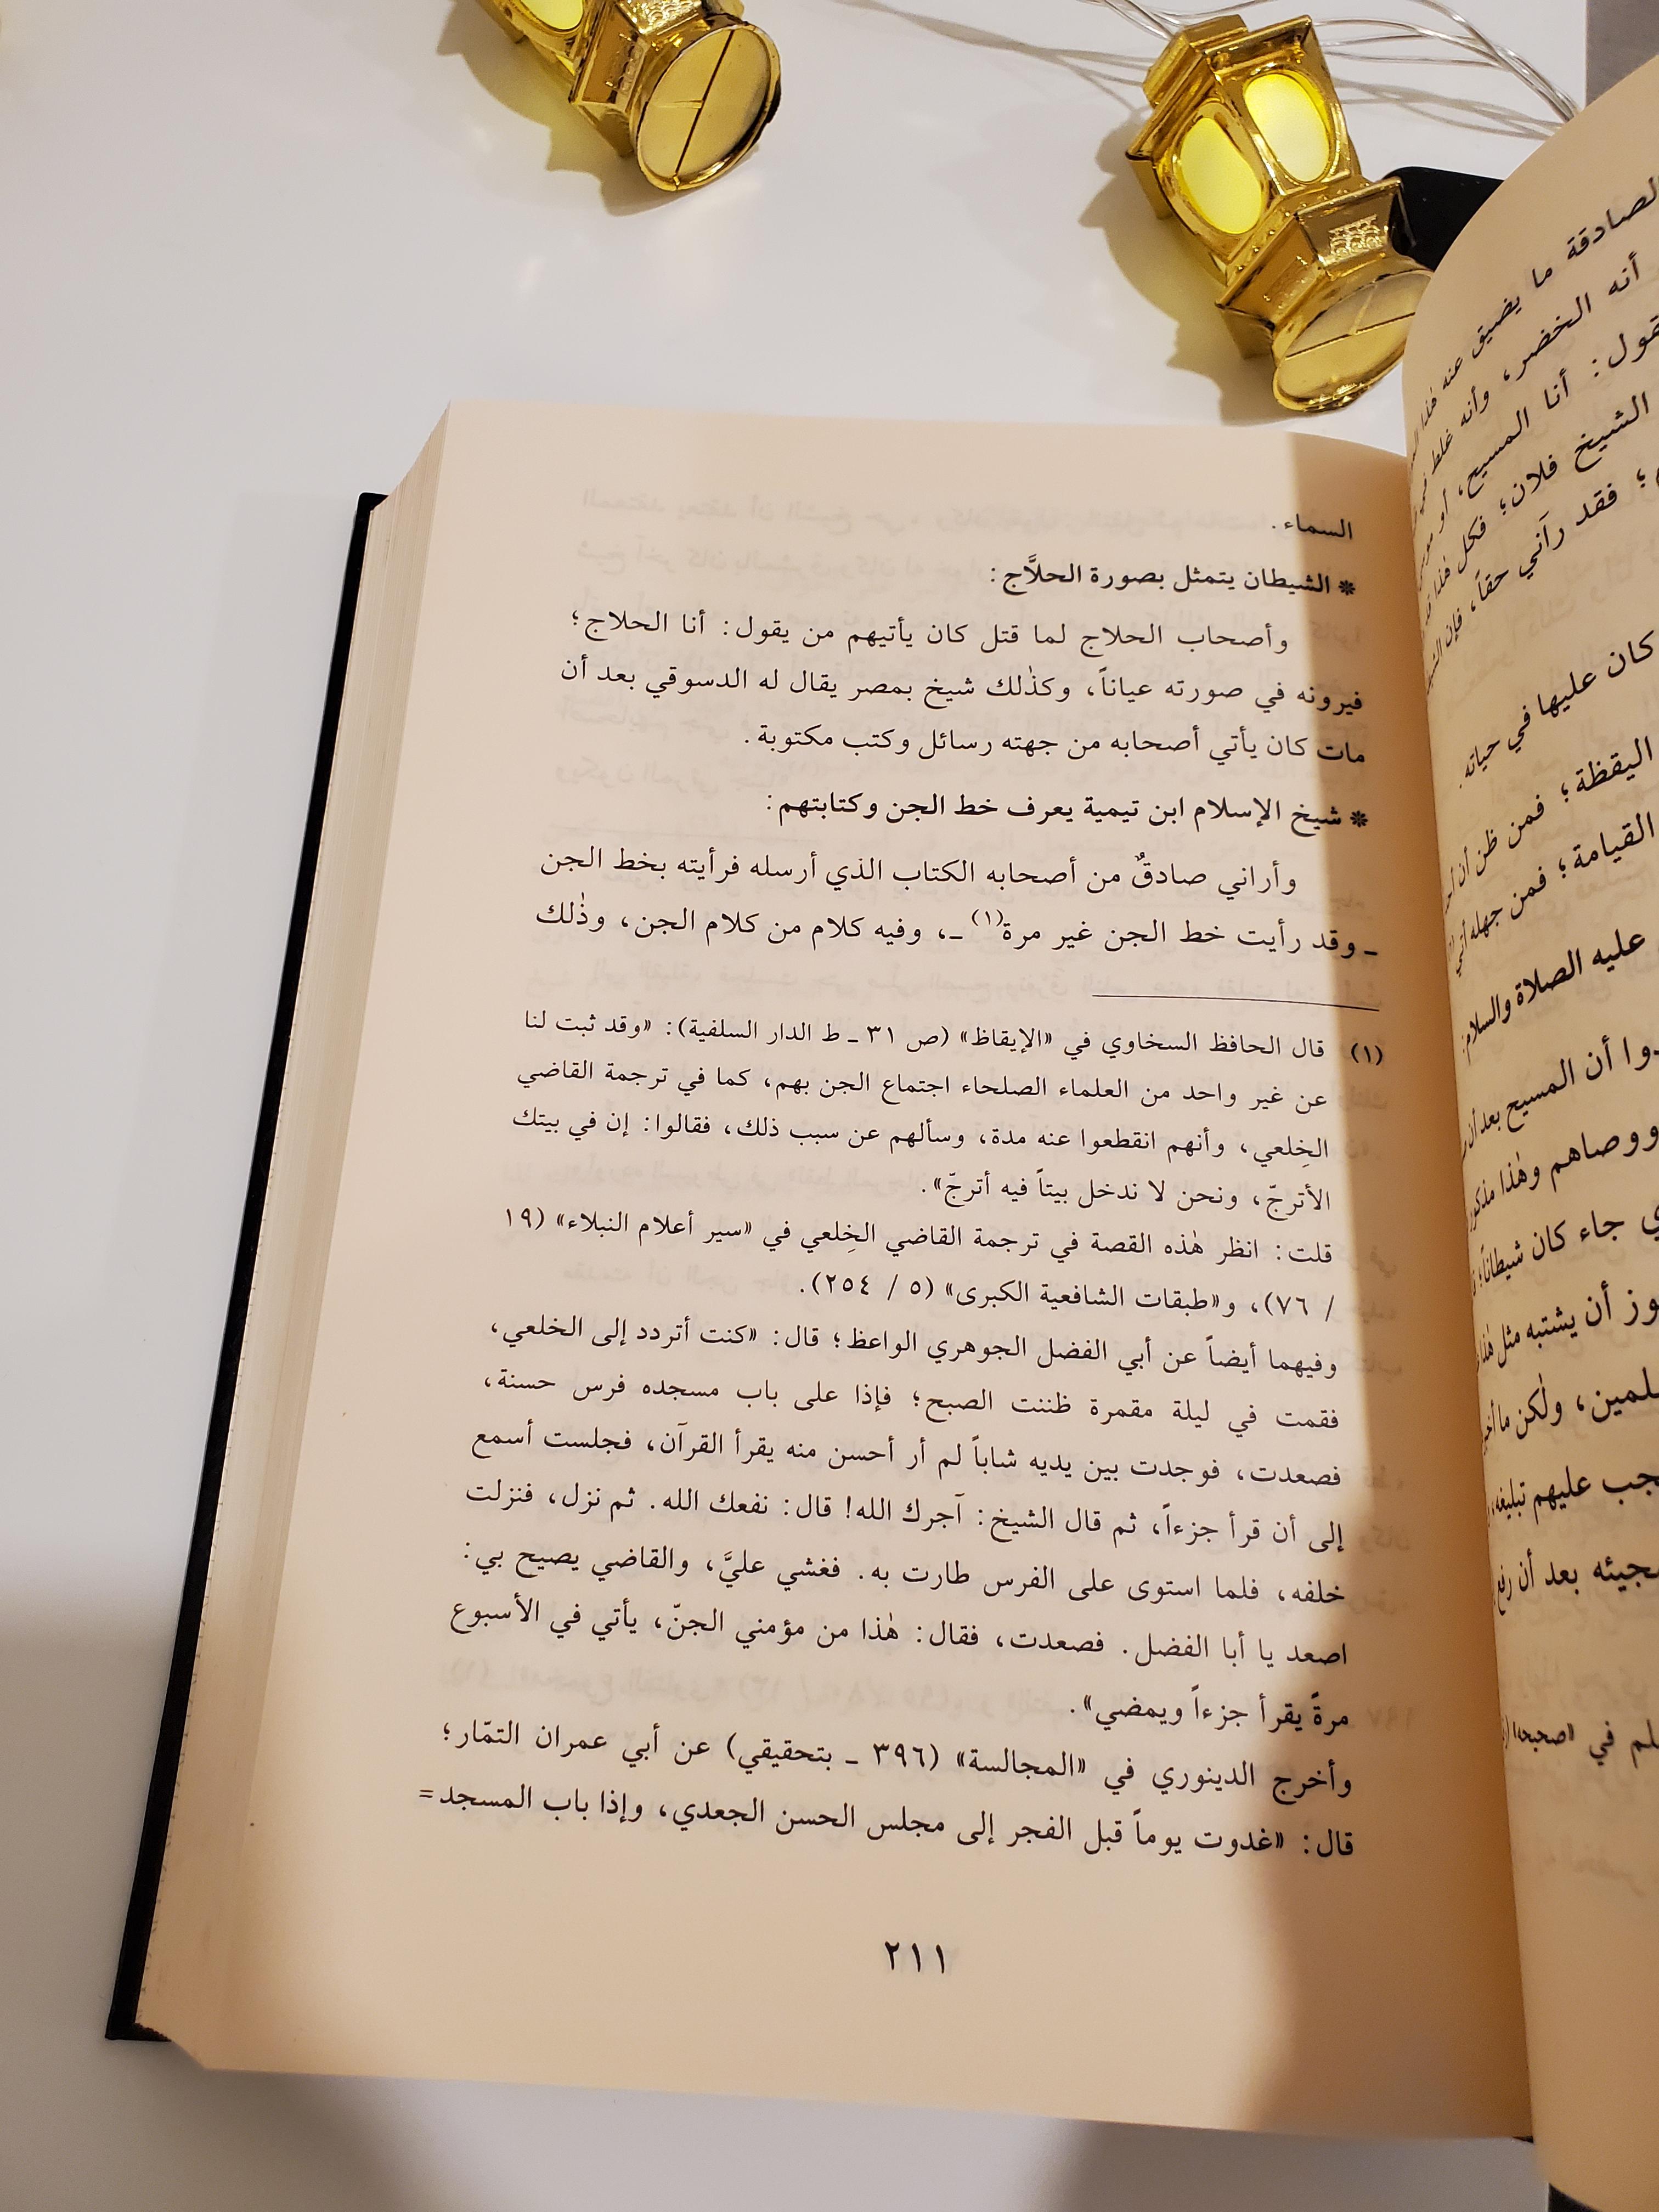 السماء.
* الشيطان يتمثل بصورة الحلاَّج:
وأصحاب الحلاج لما قتل كان يأتيهم من يقول: أنا الحلاج؛
فيرونه في صورته عياناً، وكذٰلك شيخ بمصر يقال له الدسوقي بعد أن
مات كان يأتي أصحابه من جهته رسائل وكتب مكتوبة.
* شيخ الإسلام ابن تيمية يعرف خط الجن وكتابتهم:
وأراني صادقٌ من أصحابه الكتاب الذي أرسله فرأيته بخط الجن
ـ وقد رأيت خط الجن غير مرة(١) ـ، وفيه كلام من كلام الجن، وذٰلك
(١) قال الحافظ السخاوي في «الإيقاظ» (ص ٣١ ـ ط الدار السلفية): «وقد ثبت لنا
عن غير واحد من العلماء الصلحاء اجتماع الجن بهم، كما في ترجمة القاضي
الخِلعي، وأنهم انقطعوا عنه مدة، وسألهم عن سبب ذلك، فقالوا: إن في بيتك
الأترجّ، ونحن لا ندخل بيتاً فيه أترجّ».
قلت: انظر هٰذه القصة في ترجمة القاضي الخِلعي في «سير أعلام النبلاء» (١٩
/ ٧٦)، و«طبقات الشافعية الكبرى» (٥ / ٢٥٤).
وفيهما أيضاً عن أبي الفضل الجوهري الواعظ؛ قال: «كنت أتردد إلى الخلعي،
فقمت في ليلة مقمرة ظننت الصبح؛ فإذا على باب مسجده فرس حسنة،
فصعدت، فوجدت بين يديه شاباً لم أر أحسن منه يقرأ القرآن، فجلست أسمع
إلى أن قرأ جزءاً، ثم قال الشيخ: آجرك الله! قال: نفعك الله. ثم نزل، فنزلت
خلفه، فلما استوى على الفرس طارت به. فغشي عليَّ، والقاضي يصيح بي:
اصعد يا أبا الفضل. فصعدت، فقال: هٰذا من مؤمني الجنّ، يأتي في الأسبوع
مرةً يقرأ جزءاً ويمضي».
وأخرج الدينوري في «المجالسة» (٣٩٦ ـ بتحقيقي) عن أبي عمران التمّار؛
قال: «غدوت يوماً قبل الفجر إلى مجلس الحسن الجعدي، وإذا باب المسجد=
٢١١
الصادقة ما يضيق عنه هٰذا
أنه الخضر، وأنه غلط
أنا المسيح، أو
الشيخ فلان؛ فكل هٰذا
؛ فقد رآني حقاً، فإن
كان عليها في حياته.
اليقظة؛ فمن ظن أن
القيامة؛ فمن جهله أتي
عليه الصلاة والسلام:
أن المسيح بعد أن
ووصاهم وهٰذا مذكور
جاء كان شيطاناً؛
أن يشتبه مثل هٰذا
ولٰكن ما
عليهم تبليغه،
بعد أن رفع
في «صحيحه»